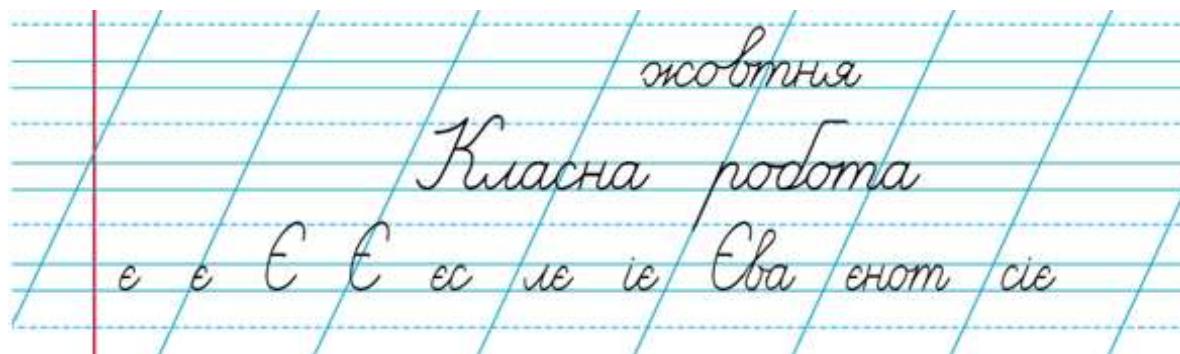 жовтня
Класна робота
є є Є Є єс лє іє Єва єнот сіє